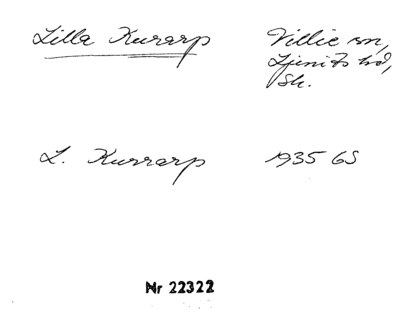 Lilla Kurarp Villie sn,
Ljunits hd,
Sk.
L. Kurrarp 1935 GS
Nr 22322